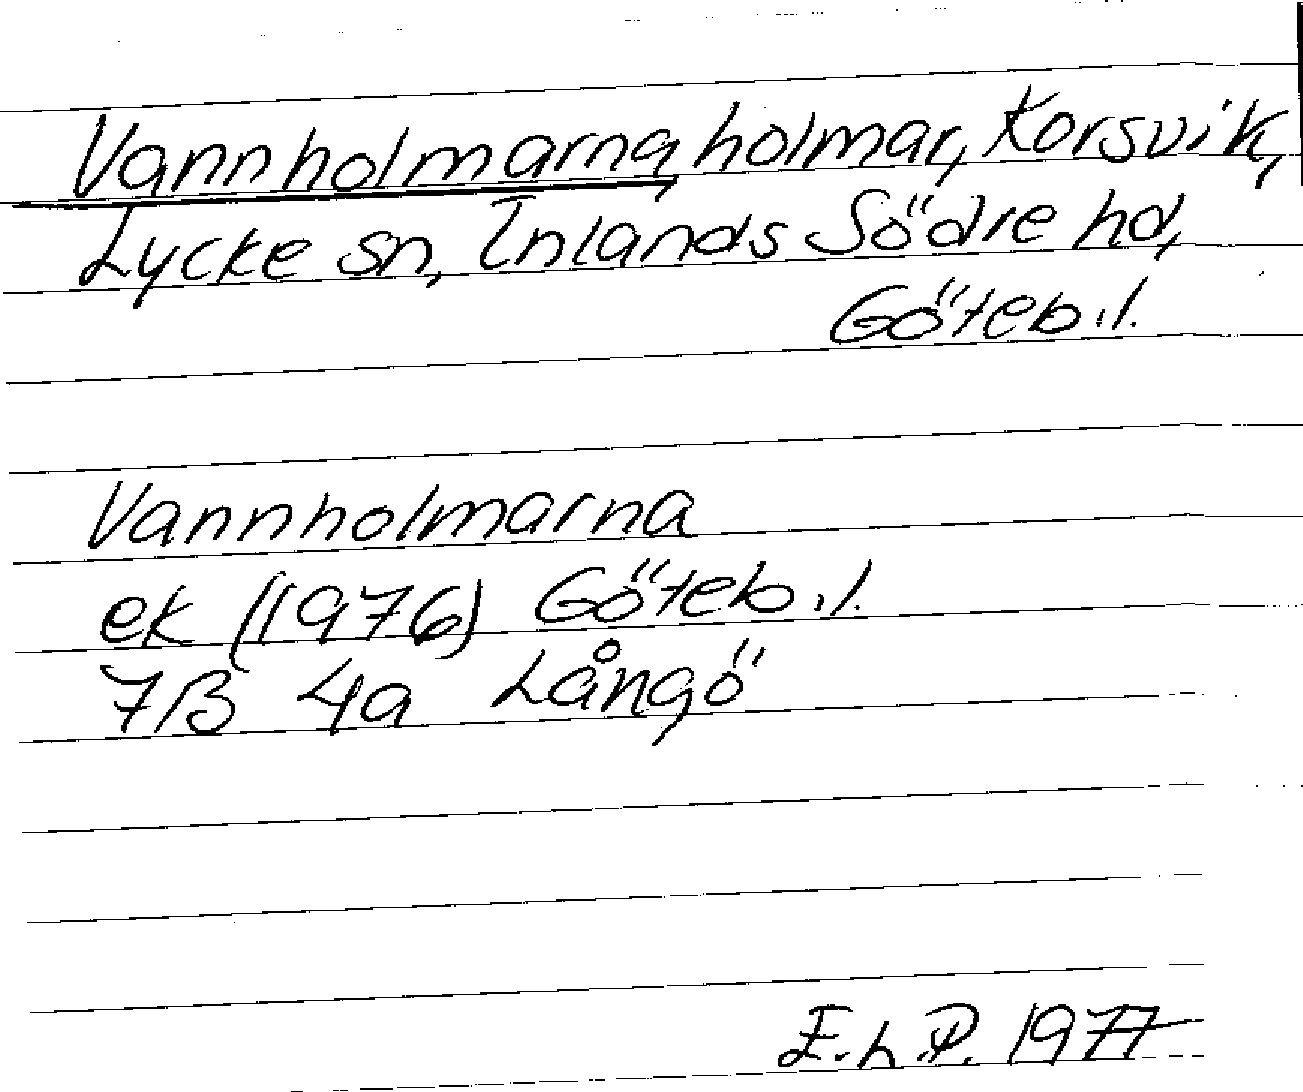 Vannholmarna, holmar, Korsvik,
Lycke sn, Inlands Södre hd,
Göteb.l.
Vannholmarna
ek (1976) Göteb.l.
7B 4a Långö
E.L.P. 1977